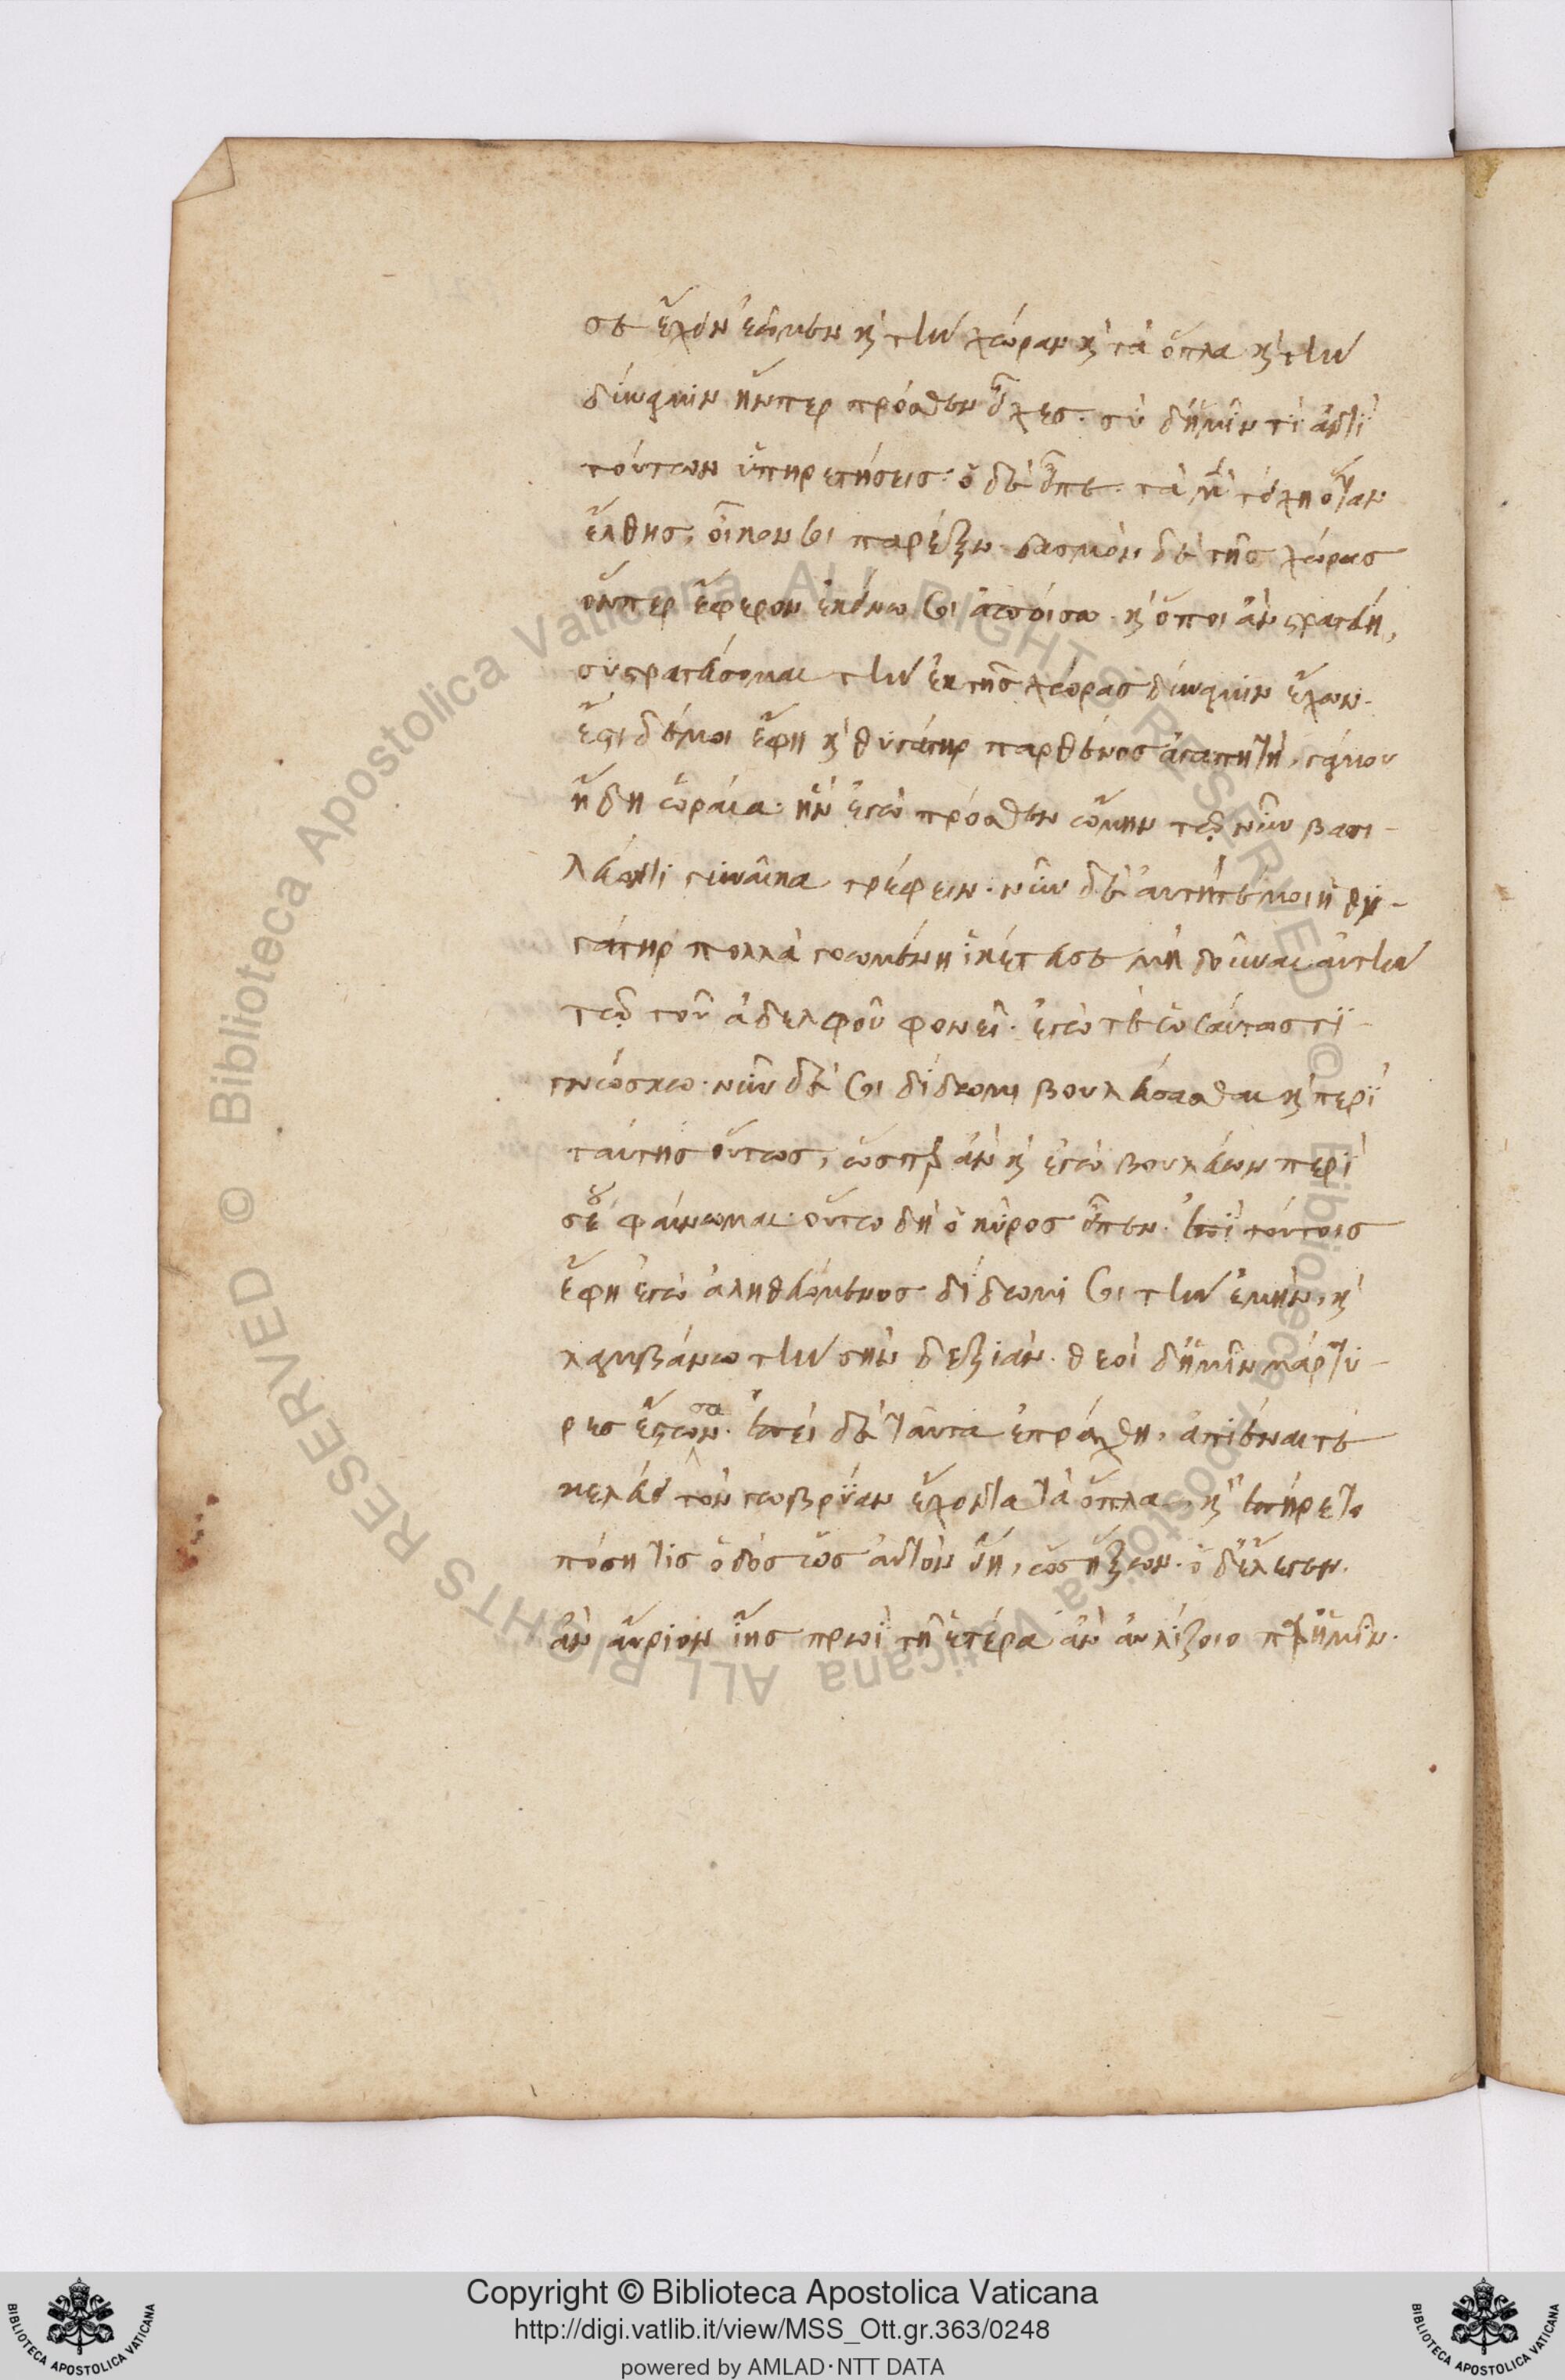 σε ἔχειν ἐῶμεν κ̀ τὴν χώραν κ̀ τὰ ὅπλα κ̀ τὴν
δύναμιν ἥνπερ πρόσθεν εἶχες. σὺ δ' ἡμῖν τί ἀντὶ
τούτων ὑπηρετήσεις· ὁ δὲ εἶπε. τὰ μὲν τείχη ὅταν
ἔλθης, οἶκόν σοι παρέξω. δασμὸν δὲ τῆς χώρας
ὅνπερ ἔφερον ἐκείνω σοι ἀποίσω. κ̀ ὅποι ἂν στρατεύη,
συστρατεύσομαι τὴν ἐκ τῆς χώρας δύναμιν ἔχων.
ἔστι δέ μοι ἔφη κ̀ θυγάτηρ παρθένος ἀγαπητὴ, γάμου
ἤδη ὡραία. ἣν ἐγὼ πρόσθεν ᾤμην τῶ νῦν βασι-
λεύοντι γυναῖκα τρέφειν. νῦν δὲ αὐτή τέ μοι ἡ θυ-
γάτηρ πολλὰ γοωμένη ἱκέτευσε μὴ δοῦναι αὐτὴν
τῶ τοῦ ἀδελφοῦ φονεῖ. ἐγώ τε ὡσαύτως γι-
γνώσκω. νῦν δέ σοι δίδωμι βουλεύσασθαι κ̀ περὶ
ταύτης οὕτως, ὥσπερ ἂν κ̀ ἐγὼ βουλεύων περὶ
σὲ φαίνωμαι. οὕτω δὴ ὁ κῦρος εἶπεν. ἐπὶ τούτοις
ἔφη ἐγὼ ἀληθευόμενος δίδωμί σοι τὴν ἐμὴν, κ̀
λαμβάνω τὴν σὴν δεξιάν. θεοὶ δ' ἡμῖν μάρτυ-
ρες ἔστωσαν. ἐπεὶ δὲ ταῦτα ἐπράχθη, ἀπιέναι τε
κελεύει τὸν γωβρύαν ἔχοντα τὰ ὅπλα, κ̀ ἐπήρετο
πόση τις ὁδὸς ὡς αὐτὸν εἴη, ὡς ἥξων. ὁ δ' ἔλεγεν.
ἂν αὔριον ἴης πρωῒ τῆ ἑτέρα ἂν αὐλίζοιο παρ' ἡμῖν.
Copyright © Biblioteca Apostolica Vaticana
http://digi.vatlib.it/view/MSS_Ott.gr.363/0248
powered by AMLAD·NTT DATA